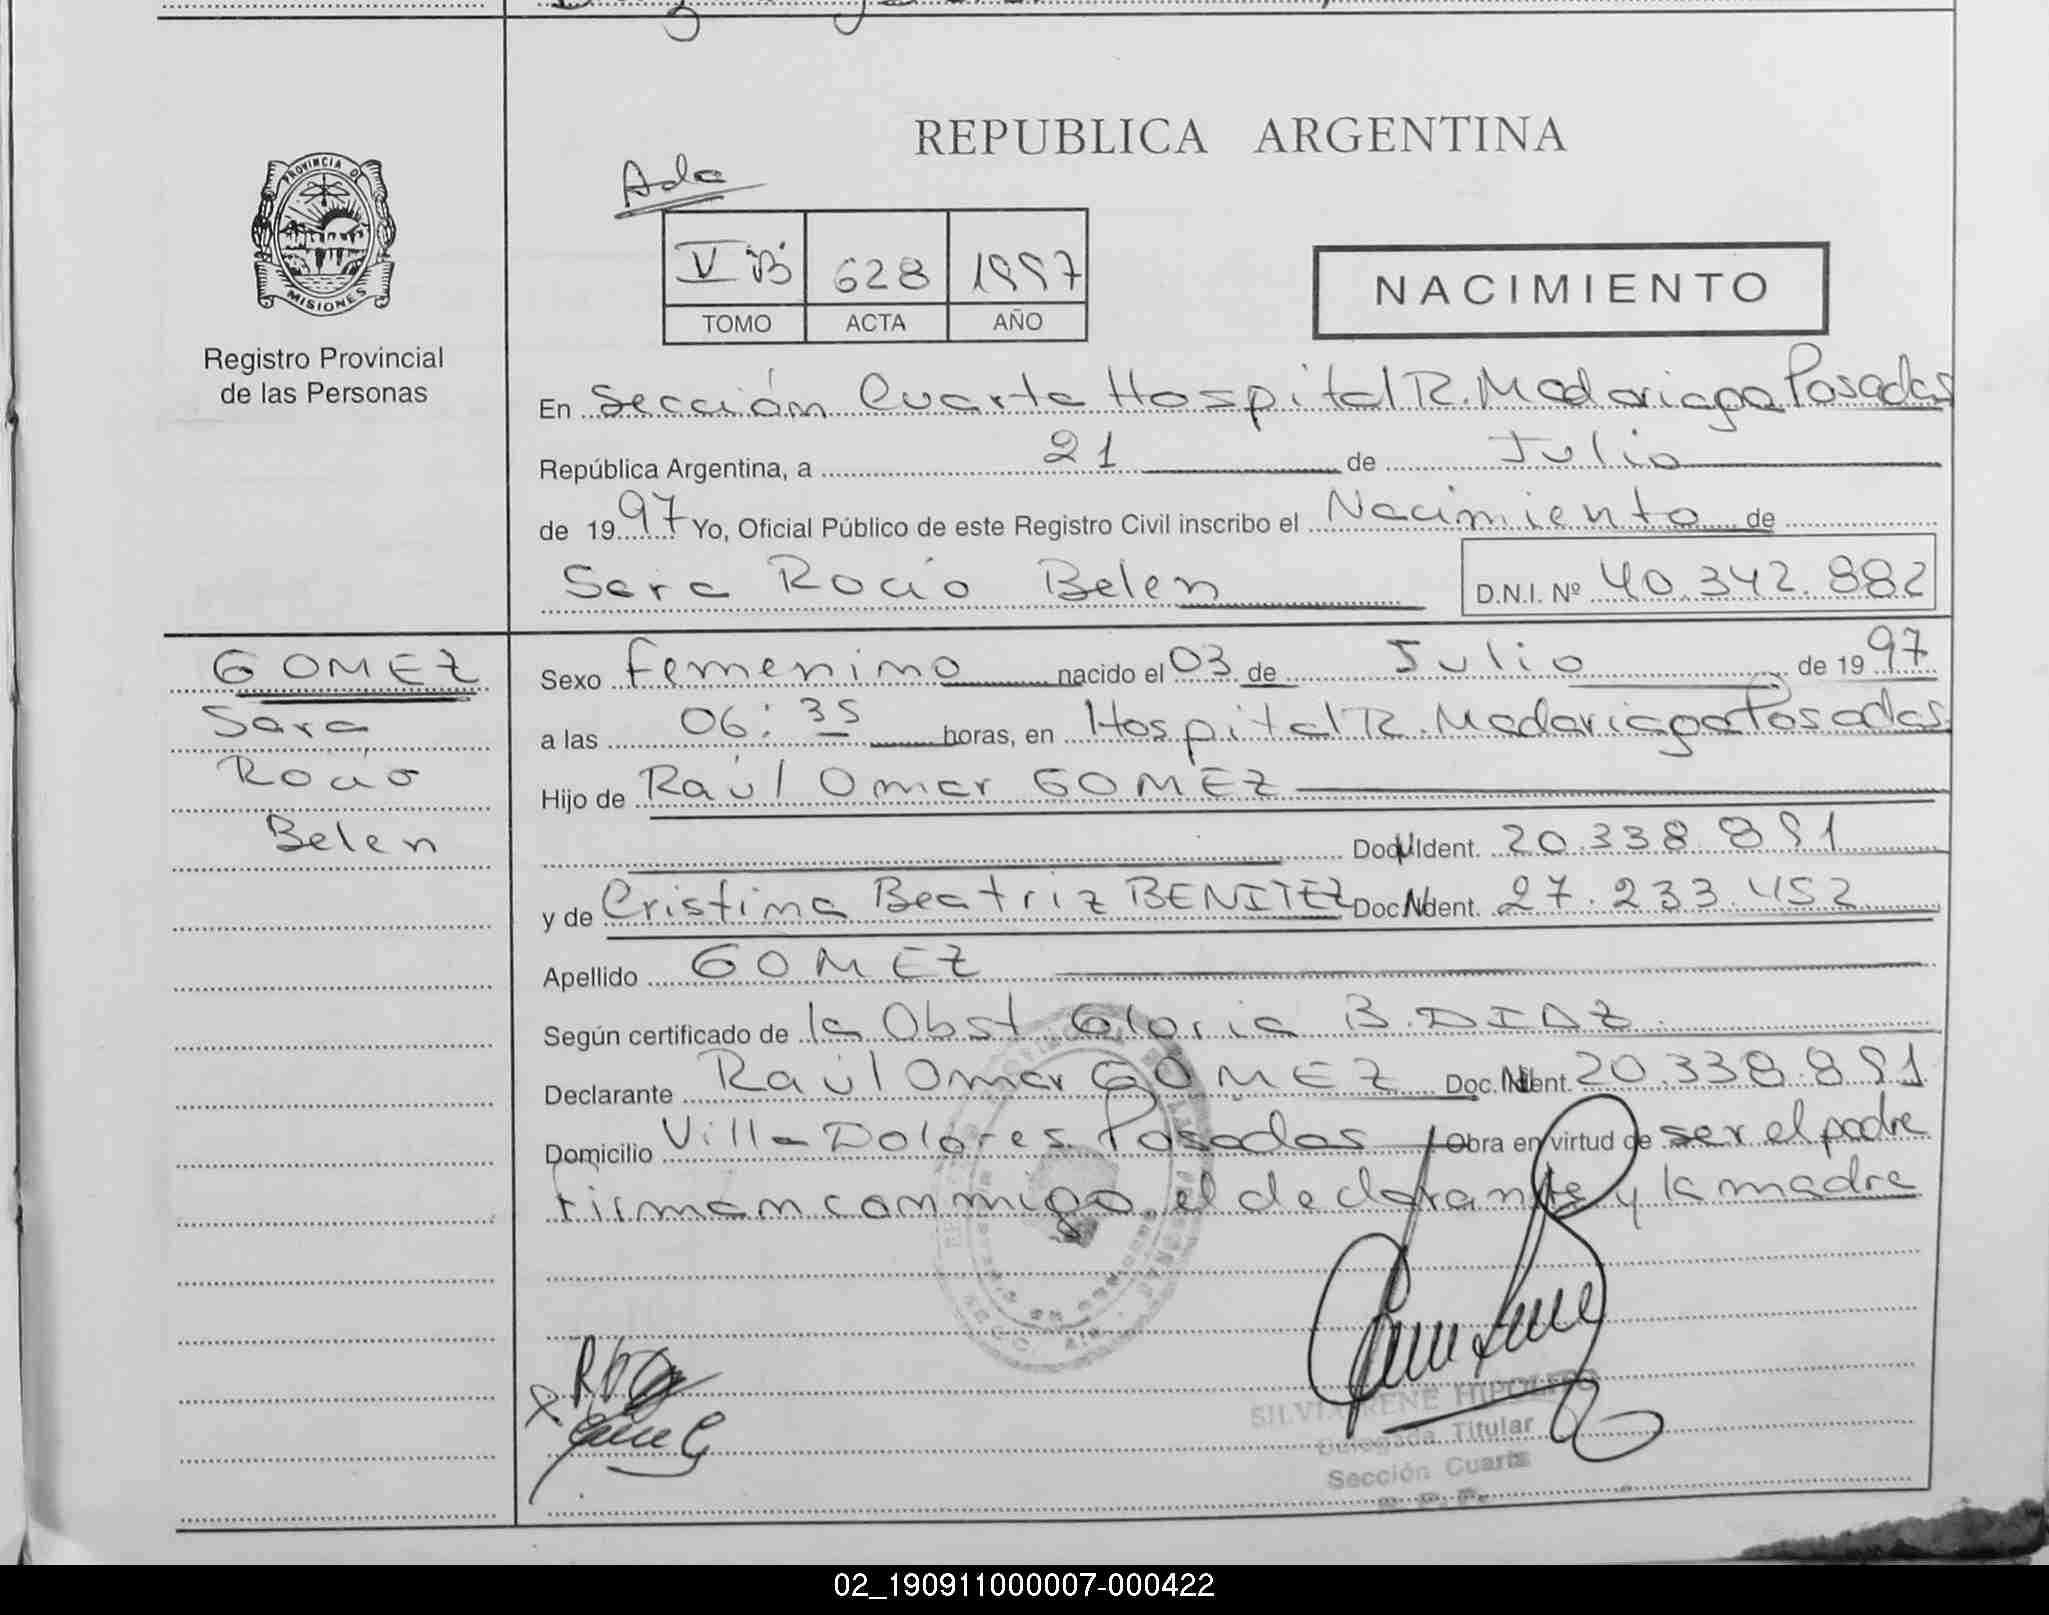 REPUBLICA ARGENTINA
PROVINCIA DE
MISIONES
Registro Provincial
de las Personas
Ada
V "B" 628 1997
TOMO ACTA AÑO
NACIMIENTO
En Sección Cuarta Hospital R. Madariaga Posadas
República Argentina, a 21 de Julio
de 1997 Yo, Oficial Público de este Registro Civil inscribo el Nacimiento de
Sara Rocio Belen D.N.I. Nº 40.342.882
GOMEZ
Sara
Rocio
Belen
Sexo femenino nacido el 03 de Julio de 1997
a las 06:35 horas, en Hospital R. Madariaga Posadas
Hijo de Raúl Omar GOMEZ
Doc. Ident. 20.338.891
y de Cristina Beatriz BENITEZ Doc. Ident. 27.233.452
Apellido GOMEZ
Según certificado de la Obst Gloria B. DIAZ
Declarante Raúl Omar GOMEZ Doc. Ident. 20.338.891
Domicilio Villa Dolores Posadas Obra en virtud de ser el padre
firman conmigo el declarante y la madre
SILVIA IRENE HIPOLITO
Delegada Titular
Sección Cuarta
02_190911000007-000422